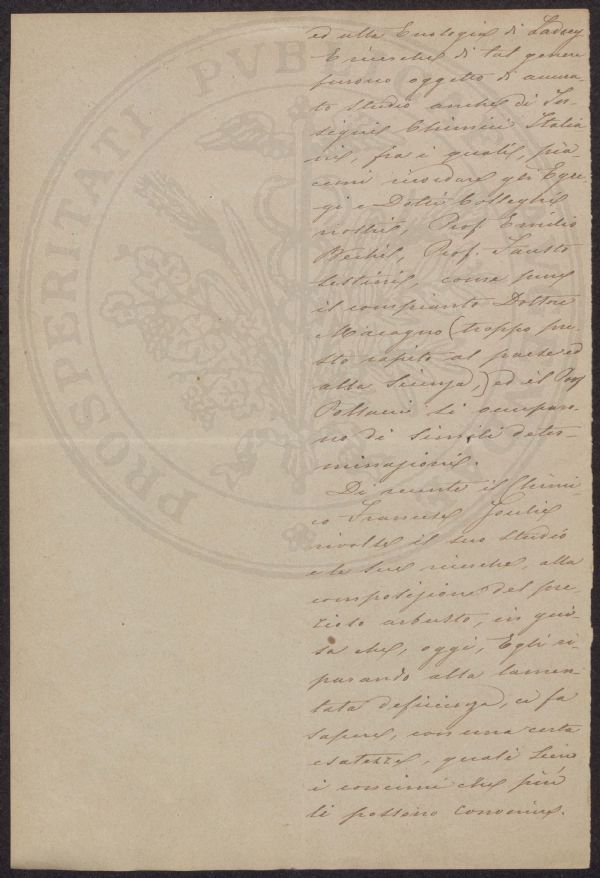 ed alla Enologia di Ladrey
E ricerche di tal genere
furono oggetto di accura-
to studio anche di In-
signi Chimici Italia
ni, fra i quali, pia-
cemi ricordare gli Egre-
gi e Dotti Colleghi
nostri, Prof. Emilio
Bechi, Prof. Fausto
Sestini, come pure
il compianto Dottore
Macagno (troppo pre-
sto rapito al paese ed
alla Scienza,) ed il Prof
Pollacci si occuparo-
no di simili deter-
minazioni.
Di recente il Chimi-
co Francese Joulie
rivolse il suo studio
e le sue ricerche, alla
composizione del pre-
zioso arbusto, in gui-
sa che, oggi, Egli ri-
parando alla lamen-
tata deficienza, ci fa
sapere, con una certa
esatezza, quali sien
i concimi che più
li possono convenire.
PROSPERITATI PVBL